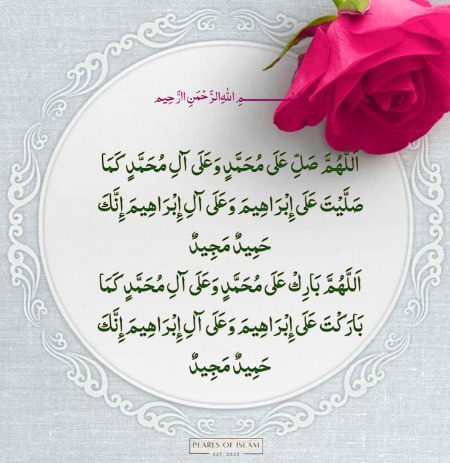 بِسْمِ اللهِ الرَّحْمَنِ الرَّحِيم
اَللَّهُمَّ صَلِّ عَلَى مُحَمَّدٍ وَعَلَى آلِ مُحَمَّدٍ كَمَا
صَلَّيْتَ عَلَى إِبْرَاهِيمَ وَعَلَى آلِ إِبْرَاهِيمَ إِنَّكَ
حَمِيدٌ مَجِيدٌ
اَللَّهُمَّ بَارِكْ عَلَى مُحَمَّدٍ وَعَلَى آلِ مُحَمَّدٍ كَمَا
بَارَكْتَ عَلَى إِبْرَاهِيمَ وَعَلَى آلِ إِبْرَاهِيمَ إِنَّكَ
حَمِيدٌ مَجِيدٌ
PEARLS OF ISLAM
EST. 2022